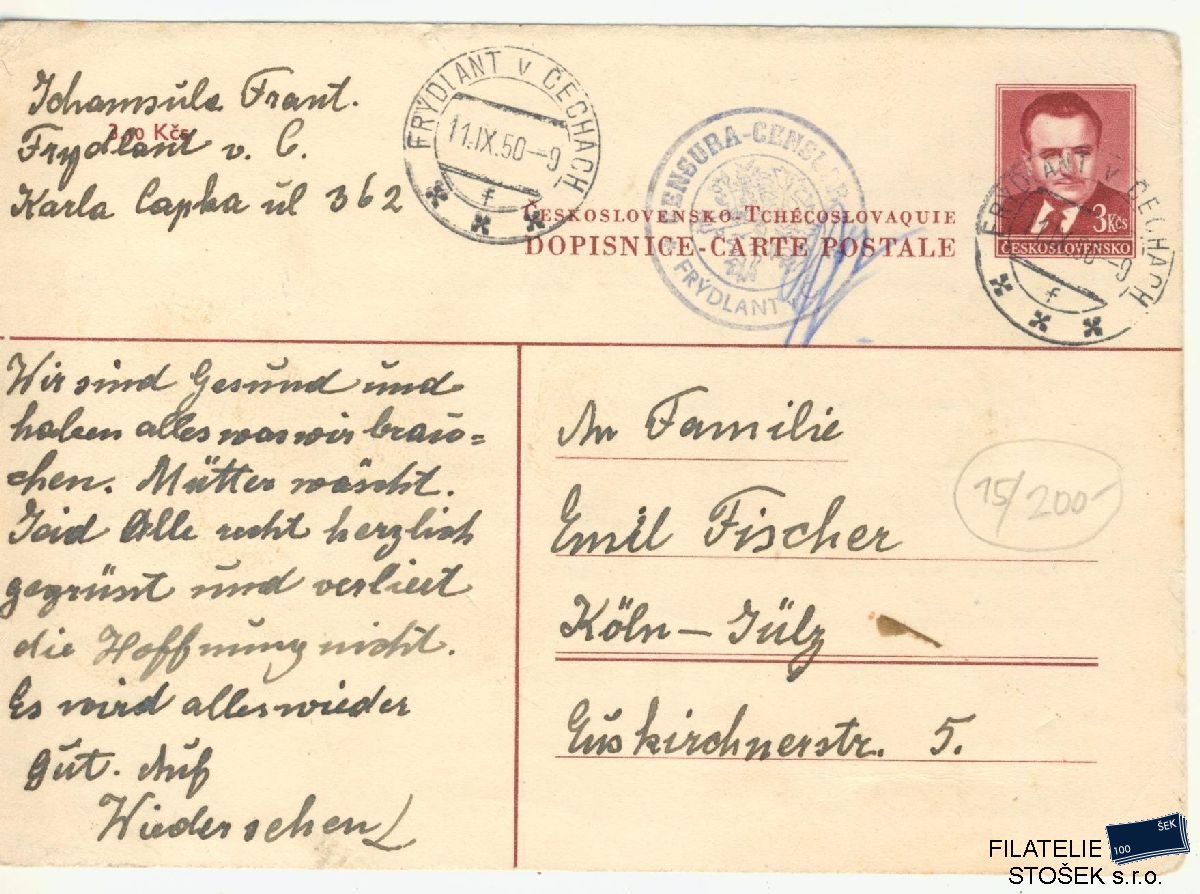 Frant.
3,00 Kčs
Frydlant v. C.
Karla Capka ul 362
FRÝDLANT V ČECHÁCH
11.IX.50-9
f
CENSURA-CENSURE
FRÝDLANT
ČESKOSLOVENSKO-TCHÉCOSLOVAQUIE
DOPISNICE-CARTE POSTALE
3Kčs
ČESKOSLOVENSKO
FRÝDLANT V ČECHÁCH
11.IX.50-9
f
Wir sind Gesund und
haben alles was wir brau=
chen. Mütter wäscht.
Said Alle recht herzlich
gegrüsst und verliert
die Hoffnung nicht.
Es wird alles wieder
gut. Auf
Wiedersehen
An Familie
Emil Fischer
Köln - Sülz
Euskirchnerstr. 5.
15/200-
FILATELIE
STOŠEK s.r.o.
100
ŠEK